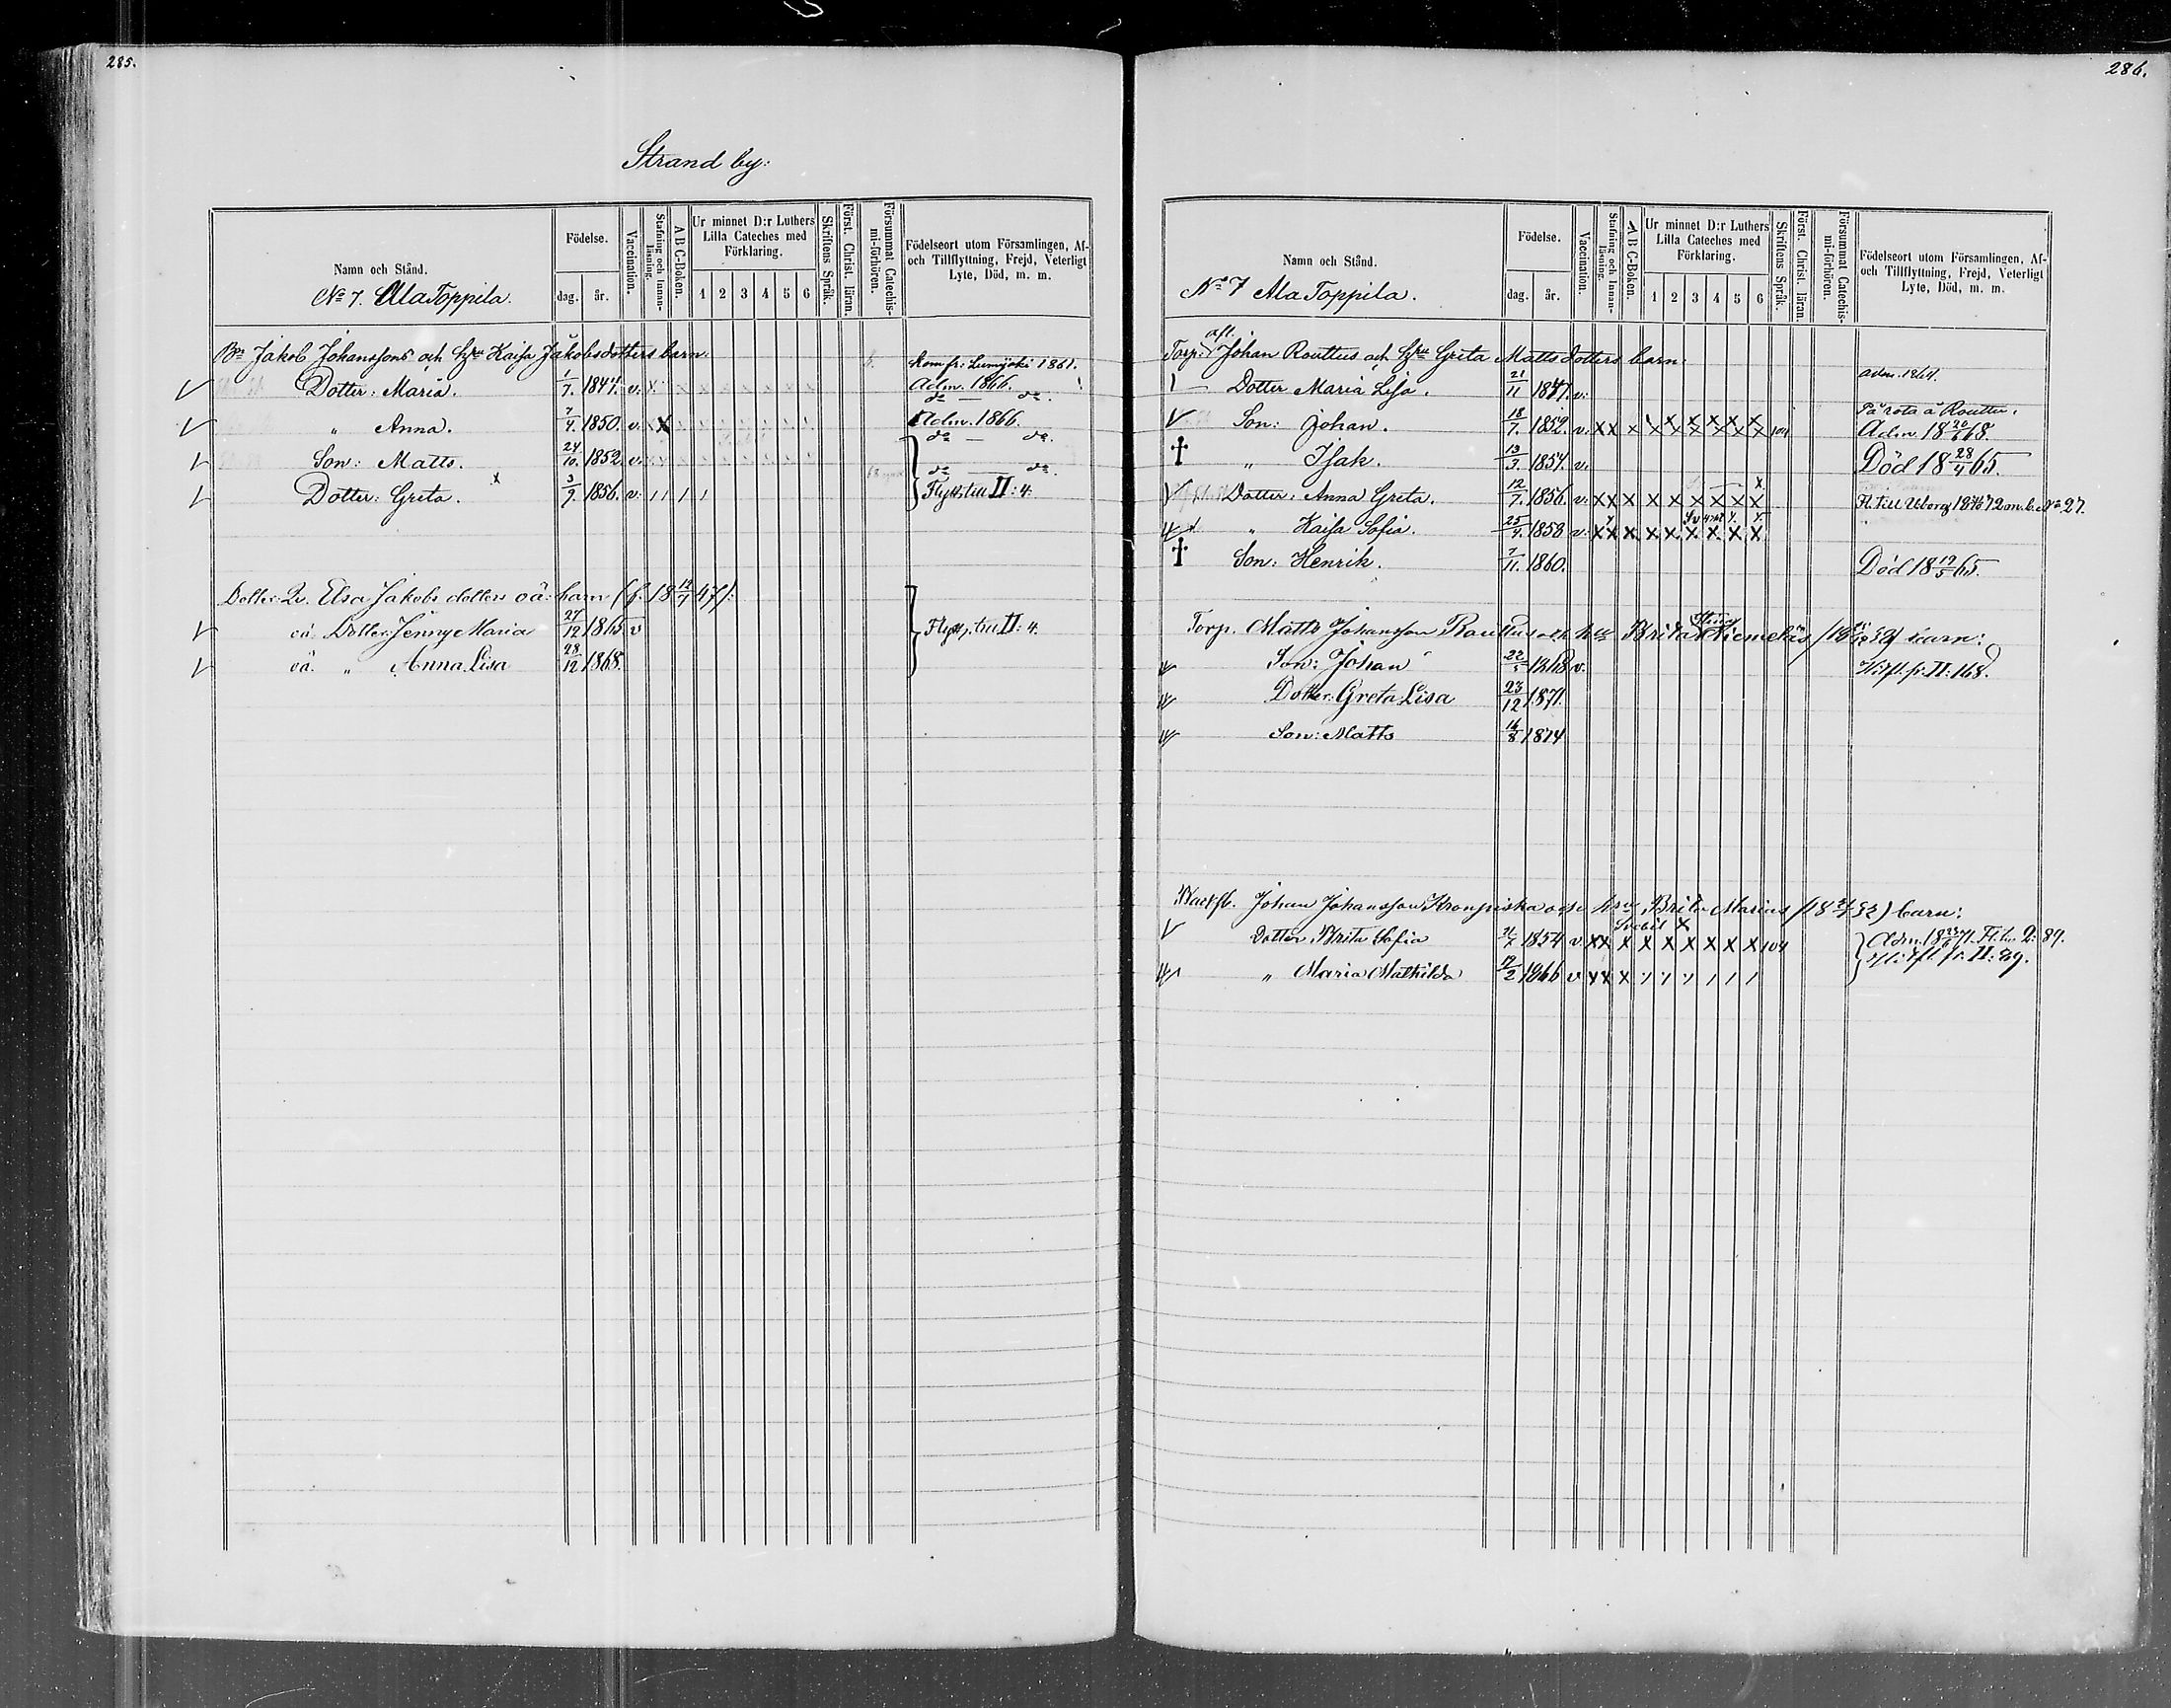 285.
Strand by:
Namn och Stånd.
No 7. Ala Toppila.
Födelse.
dag. år.
Vaccination.
Stafning och Innanläsning.
A B C-Boken.
Ur minnet D:r Luthers
Lilla Cateches med
Förklaring.
1 2 3 4 5 6
Skriftens Språk.
Först. Christ. läran.
Försummat Catechismi-förhören.
Födelseort utom Församlingen, Af-
och Tillflyttning, Frejd, Veterligt
Lyte, Död, m. m.
Bn Jakob Johanssons och Hru Kaisa Jakobsdotters barn.
Kom fr: Lumijoki 1861.
Dotter: Maria. 1/7. 1847. v. Adm. 1866.
do — do.
" Anna. 7/4. 1850. v. X Adm. 1866.
do — do.
Son: Matts. 24/10. 1852. v.
do — do.
Dotter: Greta. x 3/9. 1856. v. Flytt. till II: 4.
Dotter Elsa Jakobsdotters oä: barn (f. 18 12/7 47):
oä. Dotter: Jenny Maria 27/12 1865 v Flytt. till II: 4.
oä. " Anna Lisa 28/12 1868.
286.
Namn och Stånd.
No 7 Ala Toppila.
Födelse.
dag. år.
Vaccination.
Stafning och Innanläsning.
A B C-Boken.
Ur minnet D:r Luthers
Lilla Cateches med
Förklaring.
1 2 3 4 5 6
Skriftens Språk.
Först. Christ. läran.
Försummat Catechismi-förhören.
Födelseort utom Församlingen, Af-
och Tillflyttning, Frejd, Veterligt
Lyte, Död, m. m.
Torp. afl. Johan Routtus och Hru Greta Mattsdotters barn:
Dotter Maria Lisa. 21/11 1847. v. adm. 1864.
På rota å Routtu.
Son: Johan. 18/7. 1852. v. X X X X X X X X X 104 Adm. 18 20/6 68.
† " Isak. 13/3. 1854. v. Död 18 28/4 65.
Dotter: Anna Greta. 12/7. 1856. v. X X X X X X X X X Fl. till Uleåborg
" Kaisa Sofia. 25/4. 1858 v. X X X X X X X X X
† Son: Henrik. 7/11. 1860. Död 18 19/5 65.
Torp. Matts Johansson Routtus och hu Brita Stina Niemeläs barn:
Son: Johan 22/5 1868 v. Hitfl. fr. II: 168.
Dotter: Greta Lisa 23/12 1871.
Son: Matts 16/8 1874
Backst. Johan Johansson Kronqviska och hu Brita Marias barn:
Dotter: Brita Sofia 1854 v. X X X X X X X X X 104 Adm. 18 71. Fl. t. 2: 89.
" Maria Mathilda 19/2 1866 v X X X Hitfl. fr. II: 89.